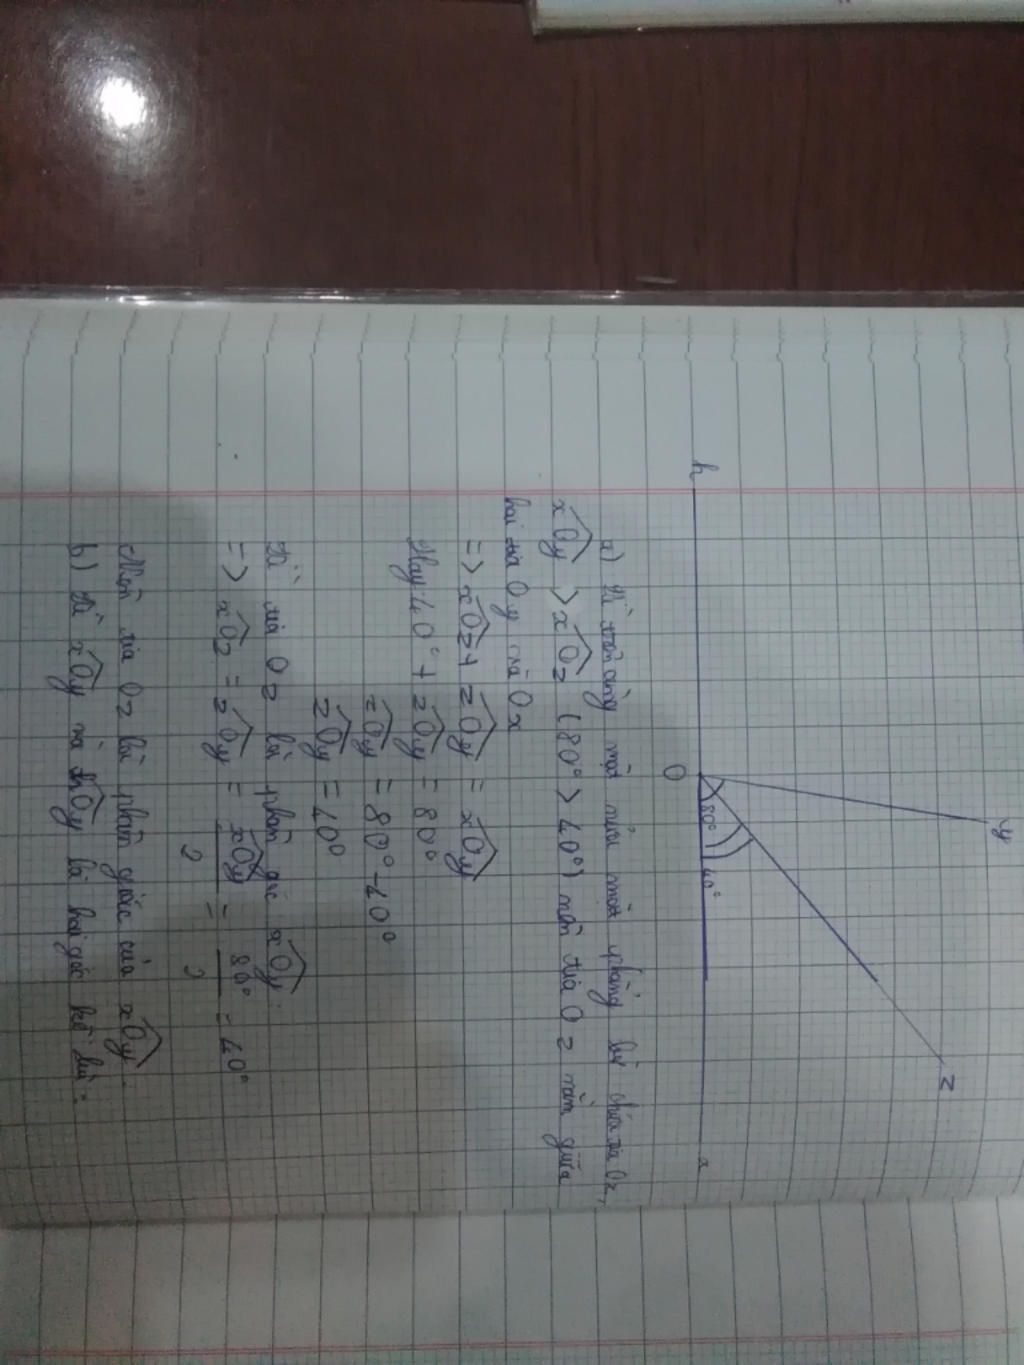 y
z
h
O
80°
40°
x
a) Vì trên cùng một nửa mặt phẳng bờ chứa tia Ox,
xOy > xOz (80° > 40°) nên tia Oz nằm giữa
hai tia Oy và Ox
=> xOz + zOy = xOy
Hay: 40° + zOy = 80°
zOy = 80° - 40°
zOy = 40°
Vì tia Oz là phân giác xOy.
=> xOz = zOy = xOy/2 = 80°/2 = 40°
Nên tia Oz là phân giác của xOy.
b) Vì xOy và hOy là hai góc kề bù: